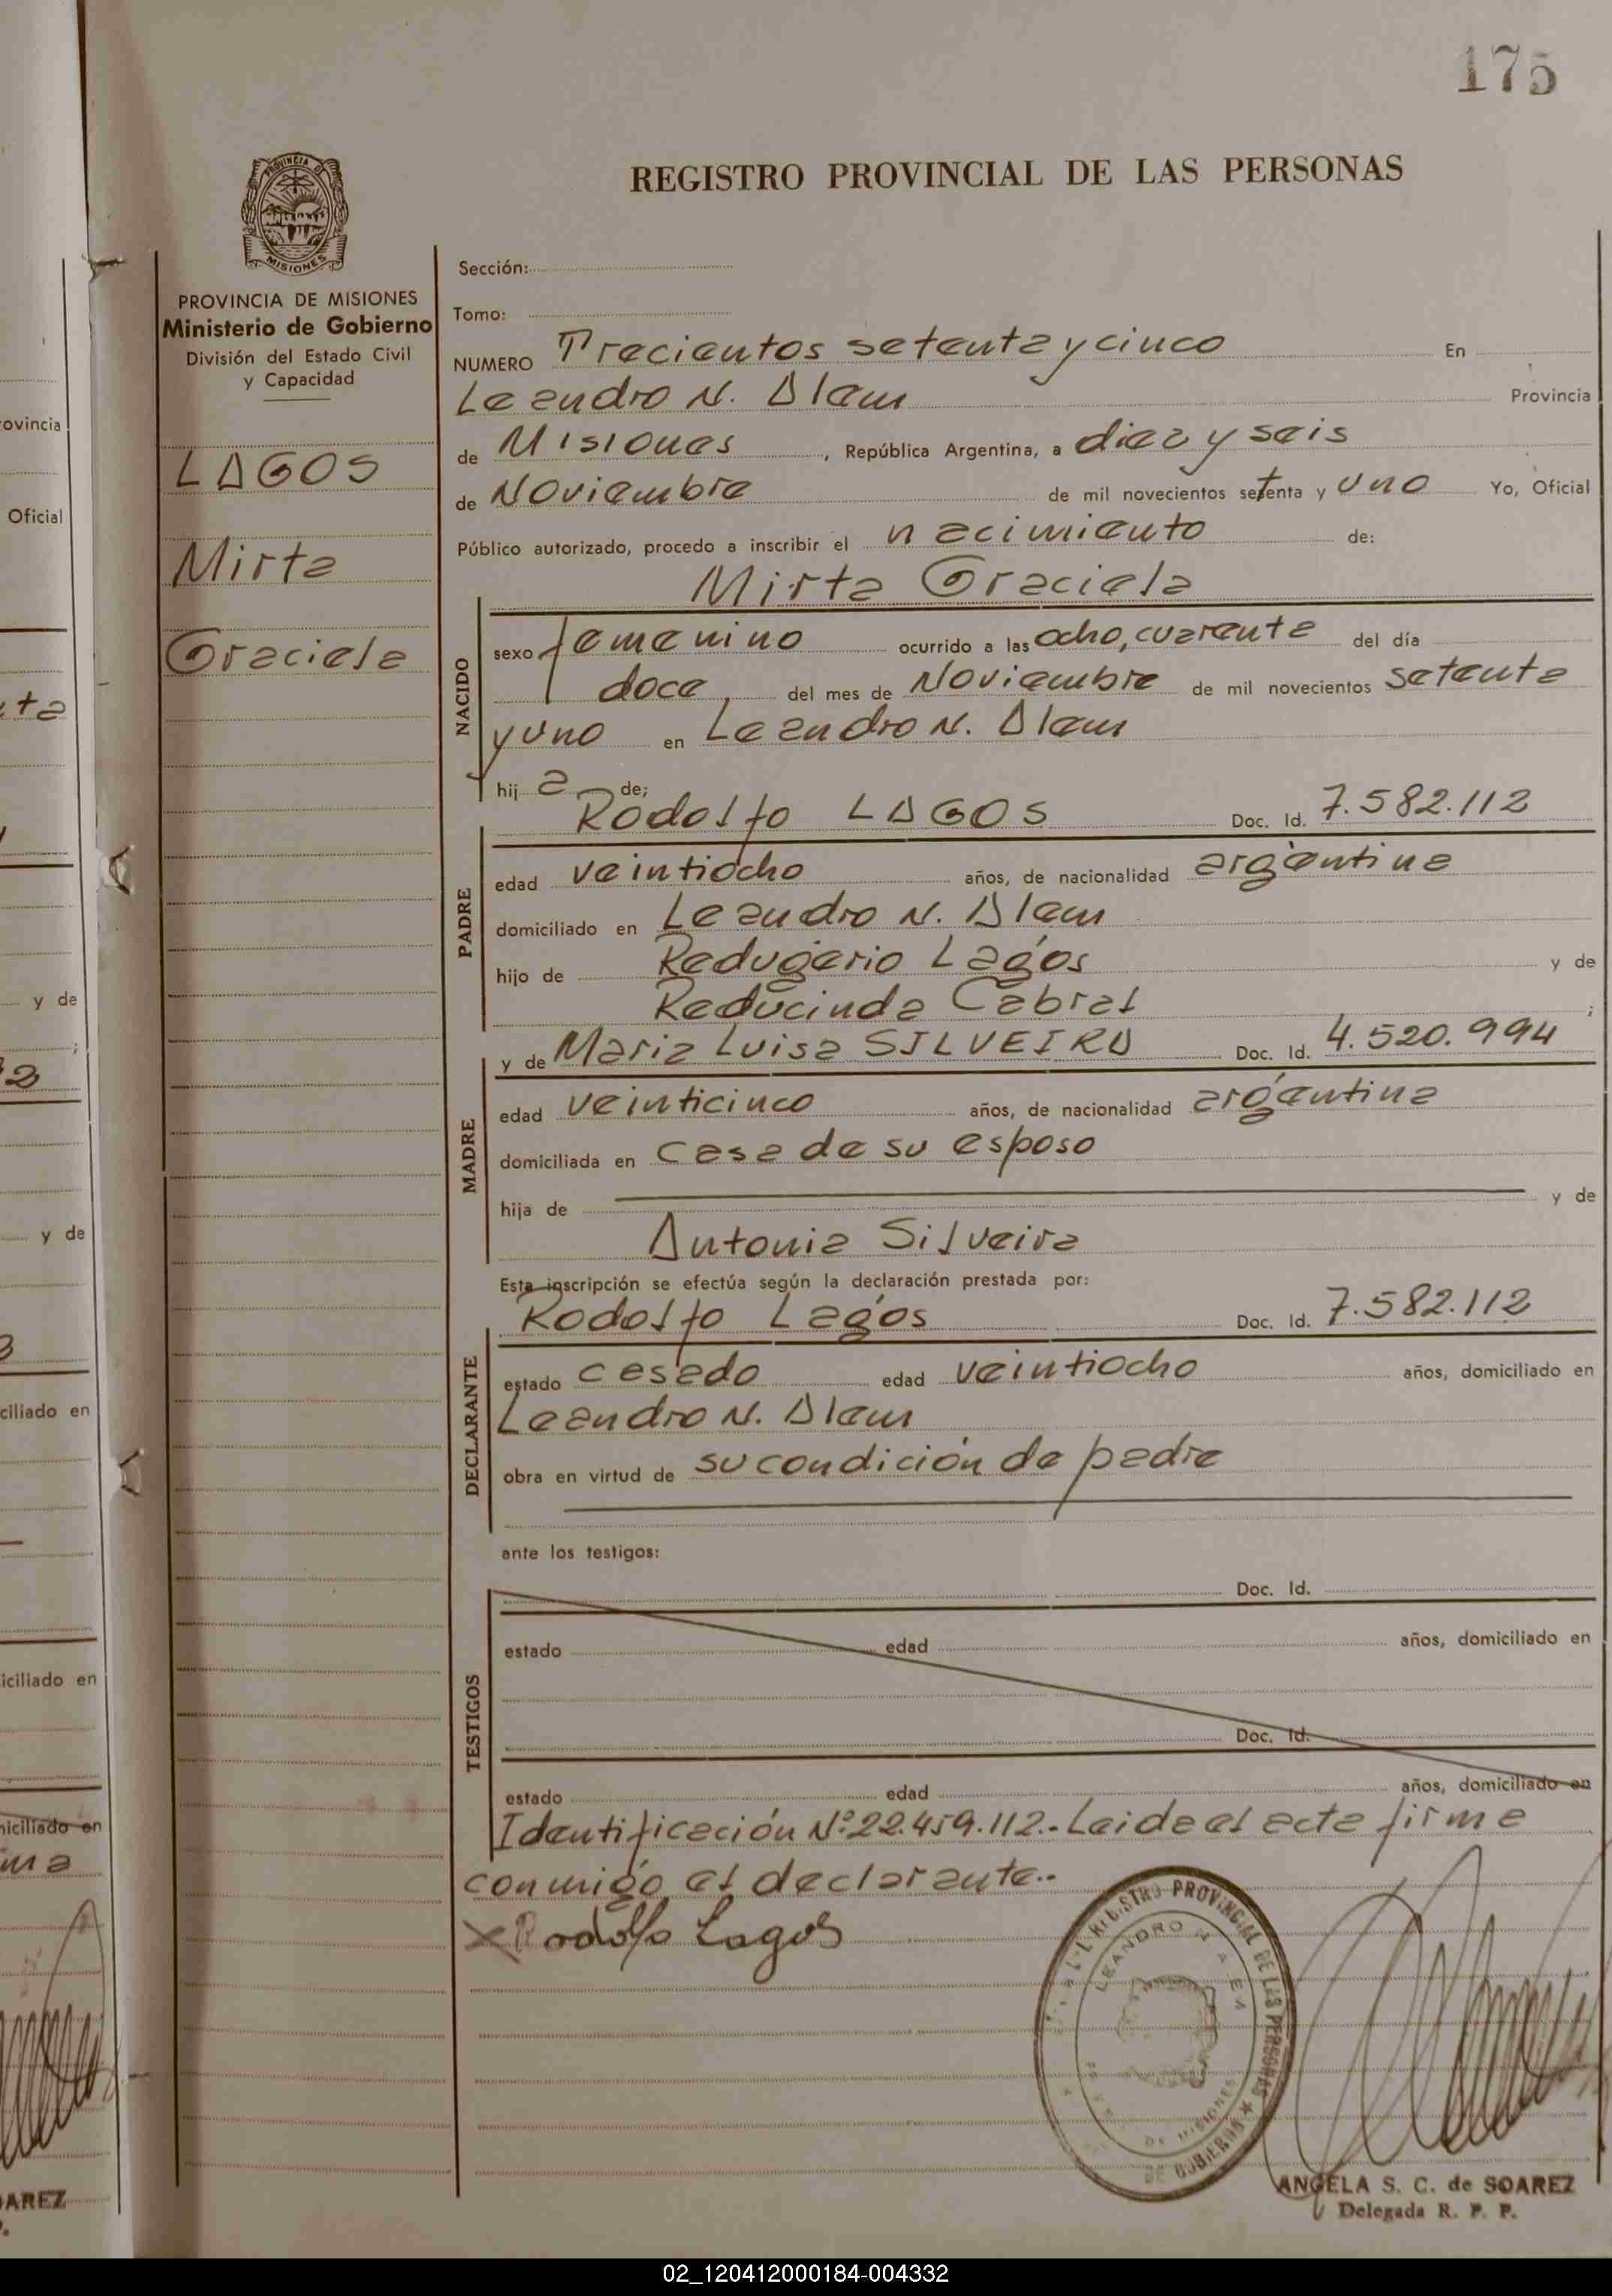 175
REGISTRO PROVINCIAL DE LAS PERSONAS
PROVINCIA DE MISIONES
MISIONES
PROVINCIA DE MISIONES
Ministerio de Gobierno
División del Estado Civil
y Capacidad
LAGOS
Mirta
Graciela
Sección:
Tomo:
NUMERO Trecientos setenta y cinco En
Leandro N. Alem Provincia
de Misiones, República Argentina, a diez y seis
de Noviembre de mil novecientos setenta y uno Yo, Oficial
Público autorizado, procedo a inscribir el nacimiento de:
Mirta Graciela
NACIDO
sexo femenino ocurrido a las ocho, cuarenta del día
doce, del mes de Noviembre de mil novecientos setenta
y uno en Leandro N. Alem
hij a de;
Rodolfo LAGOS Doc. Id. 7.582.112
PADRE
edad veintiocho años, de nacionalidad argentina
domiciliado en Leandro N. Alem
hijo de Redugerio Lagos y de
Reducinda Cabral ;
y de Maria Luisa SILVEIRA Doc. Id. 4.520.994
MADRE
edad veinticinco años, de nacionalidad argentina
domiciliada en casa de su esposo
hija de y de
Antonia Silveira
Esta inscripción se efectúa según la declaración prestada por:
Rodolfo Lagos Doc. Id. 7.582.112
DECLARANTE
estado casado edad veintiocho años, domiciliado en
Leandro N. Alem
obra en virtud de su condición de padre
ante los testigos:
Doc. Id.
TESTIGOS
estado edad años, domiciliado en
Doc. Id.
estado edad años, domiciliado en
Identificación Nº 22.459.112.- Leida el acta firma
conmigo el declarante.-
X Rodolfo Lagos
REGISTRO PROVINCIAL DE LAS PERSONAS
LEANDRO N. ALEM
DE MISIONES
DE GOBIERNO
ANGELA S. C. de SOAREZ
Delegada R. P. P.
ovincia
Oficial
y de
y de
ciliado en
iciliado en
niciliado en
ma
OAREZ
02_120412000184-004332